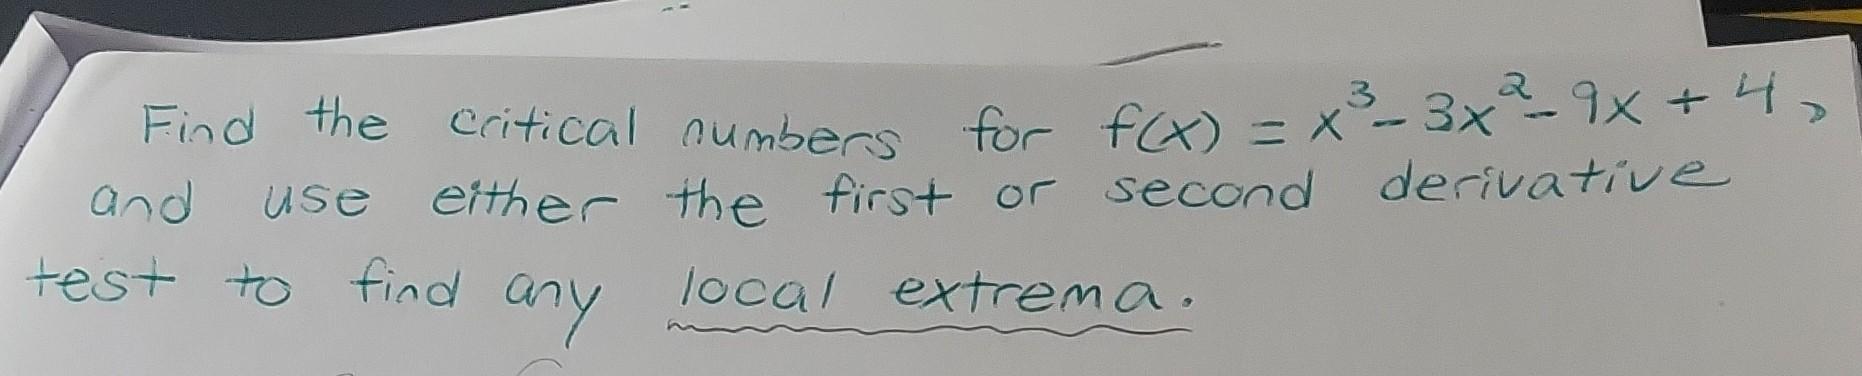 Find the critical numbers for f(x) = x³ - 3x² - 9x + 4,
and use either the first or second derivative
test to find any local extrema.